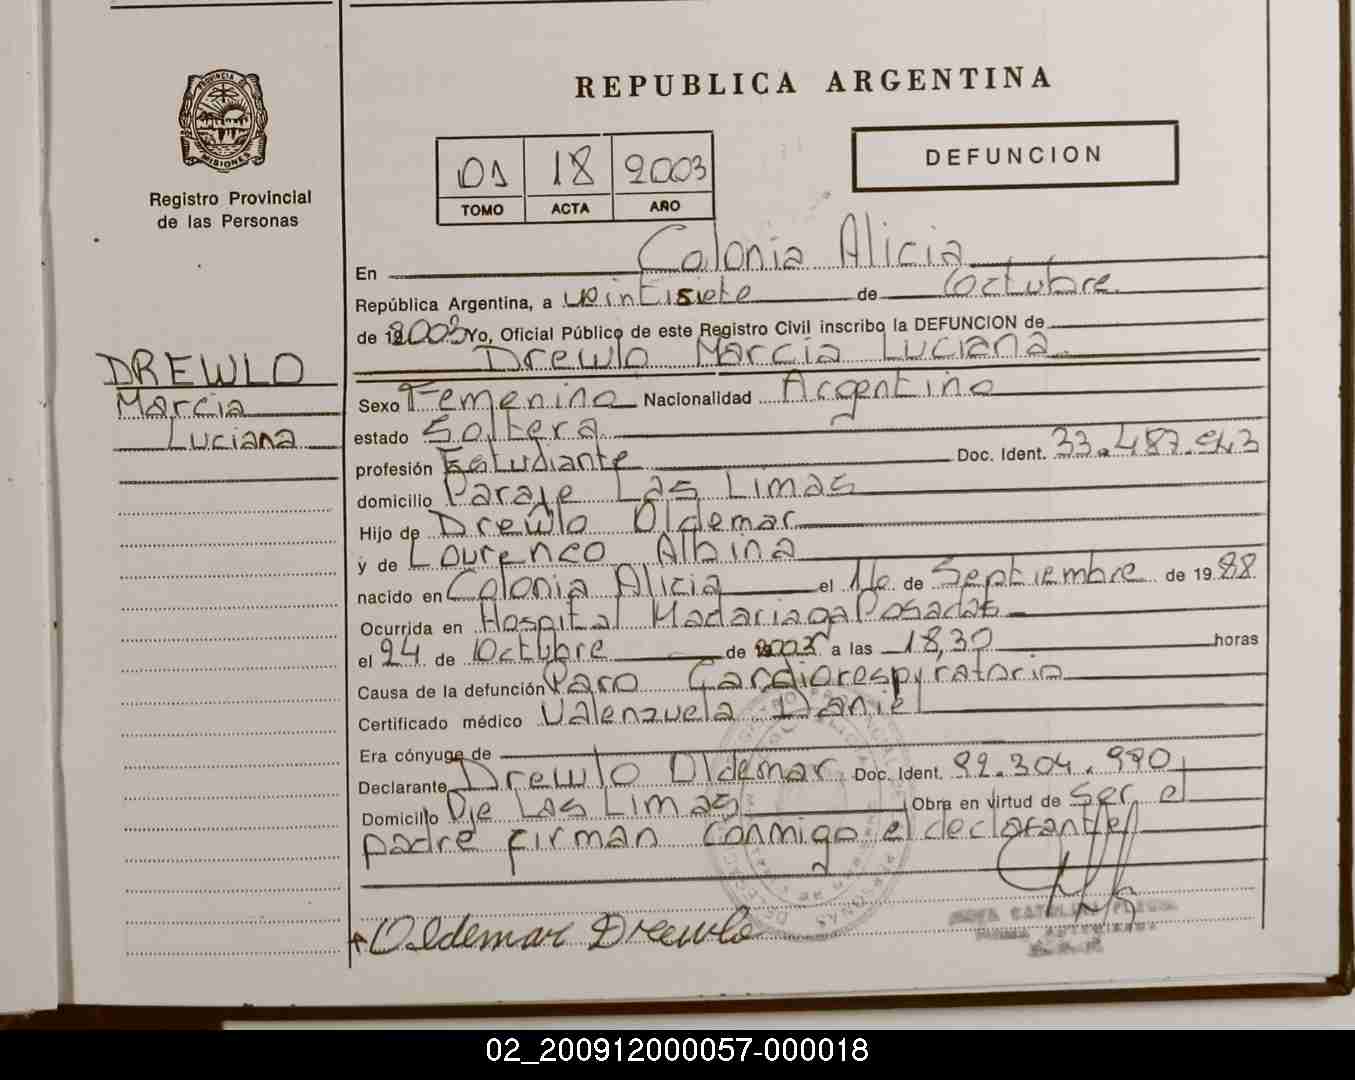 REPUBLICA ARGENTINA
PROVINCIA DE MISIONES
Registro Provincial
de las Personas
01 18 2003
TOMO ACTA AÑO
DEFUNCION
DREWLO
Marcia
Luciana
En Colonia Alicia
República Argentina, a veintisiete de Octubre
de 2003 Yo, Oficial Público de este Registro Civil inscribo la DEFUNCION de
Drewlo Marcia Luciana
Sexo Femenino Nacionalidad Argentina
estado Soltera
profesión Estudiante Doc. Ident. 33.487.943
domicilio Paraje Las Limas
Hijo de Drewlo Oldemar
y de Lourenco Albina
nacido en Colonia Alicia el de Septiembre de 1988
Ocurrida en Hospital Madariaga Posadas
el 24 de Octubre de 2003 a las 18,30 horas
Causa de la defunción Paro Cardiorespyratorio
Certificado médico Valenzuela Daniel
Era cónyuge de
Declarante Drewlo Oldemar Doc. Ident. 92.304.990
Domicilio Pje Las Limas Obra en virtud de Ser el
padre firman conmigo el declarante
Oldemar Drewlo
02_200912000057-000018